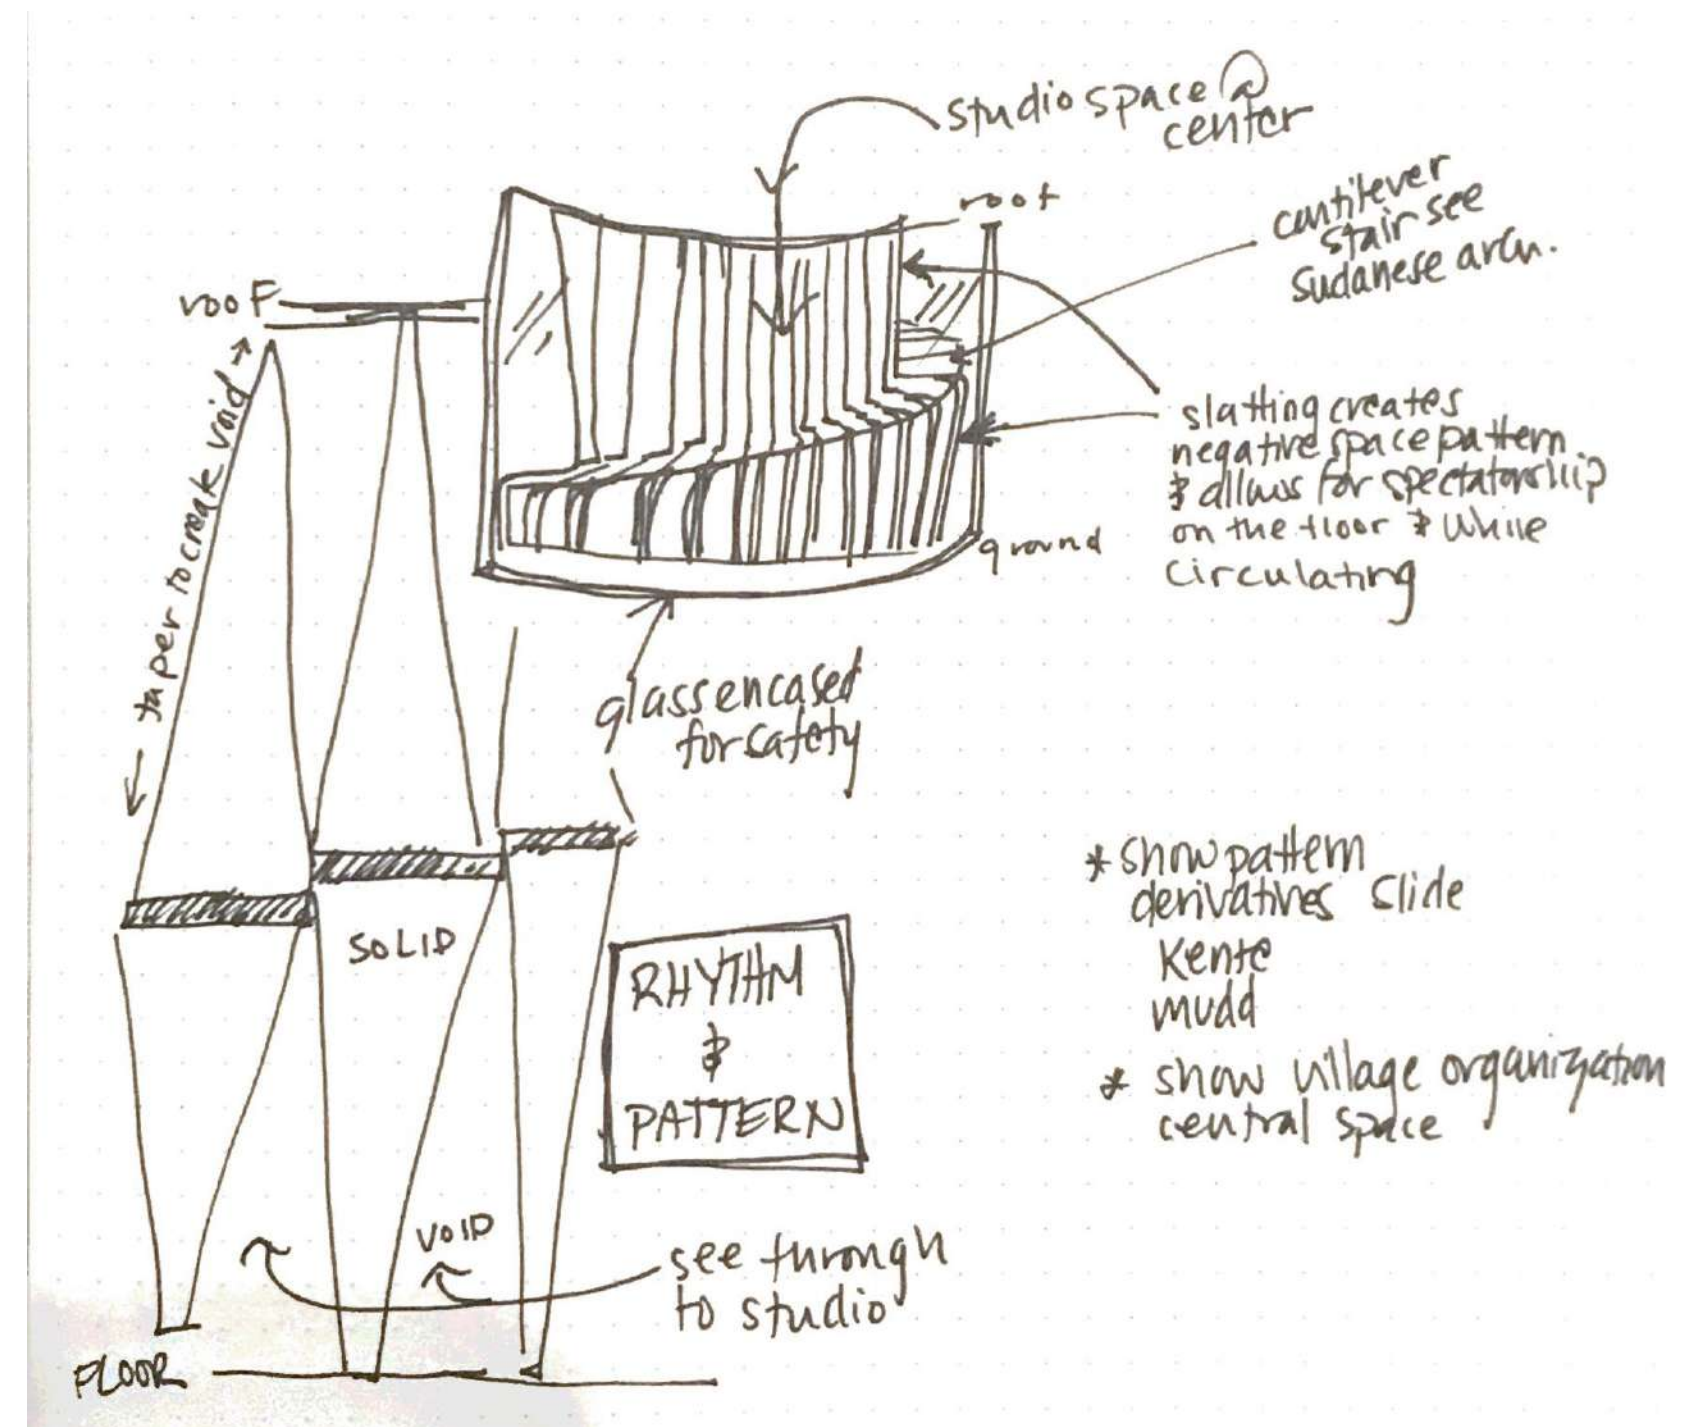 studio space @
center
roof
cantilever
stair see
sudanese arch.
rooF
taper to create void
slatting creates
negative space pattern
& allows for spectatorship
on the floor & while
circulating
ground
glass encased
for safety
* show pattern
derivatives slide
Kente
mudd
* show village organization
central space
SOLID
RHYTHM
&
PATTERN
VOID
see through
to studio
FLOOR